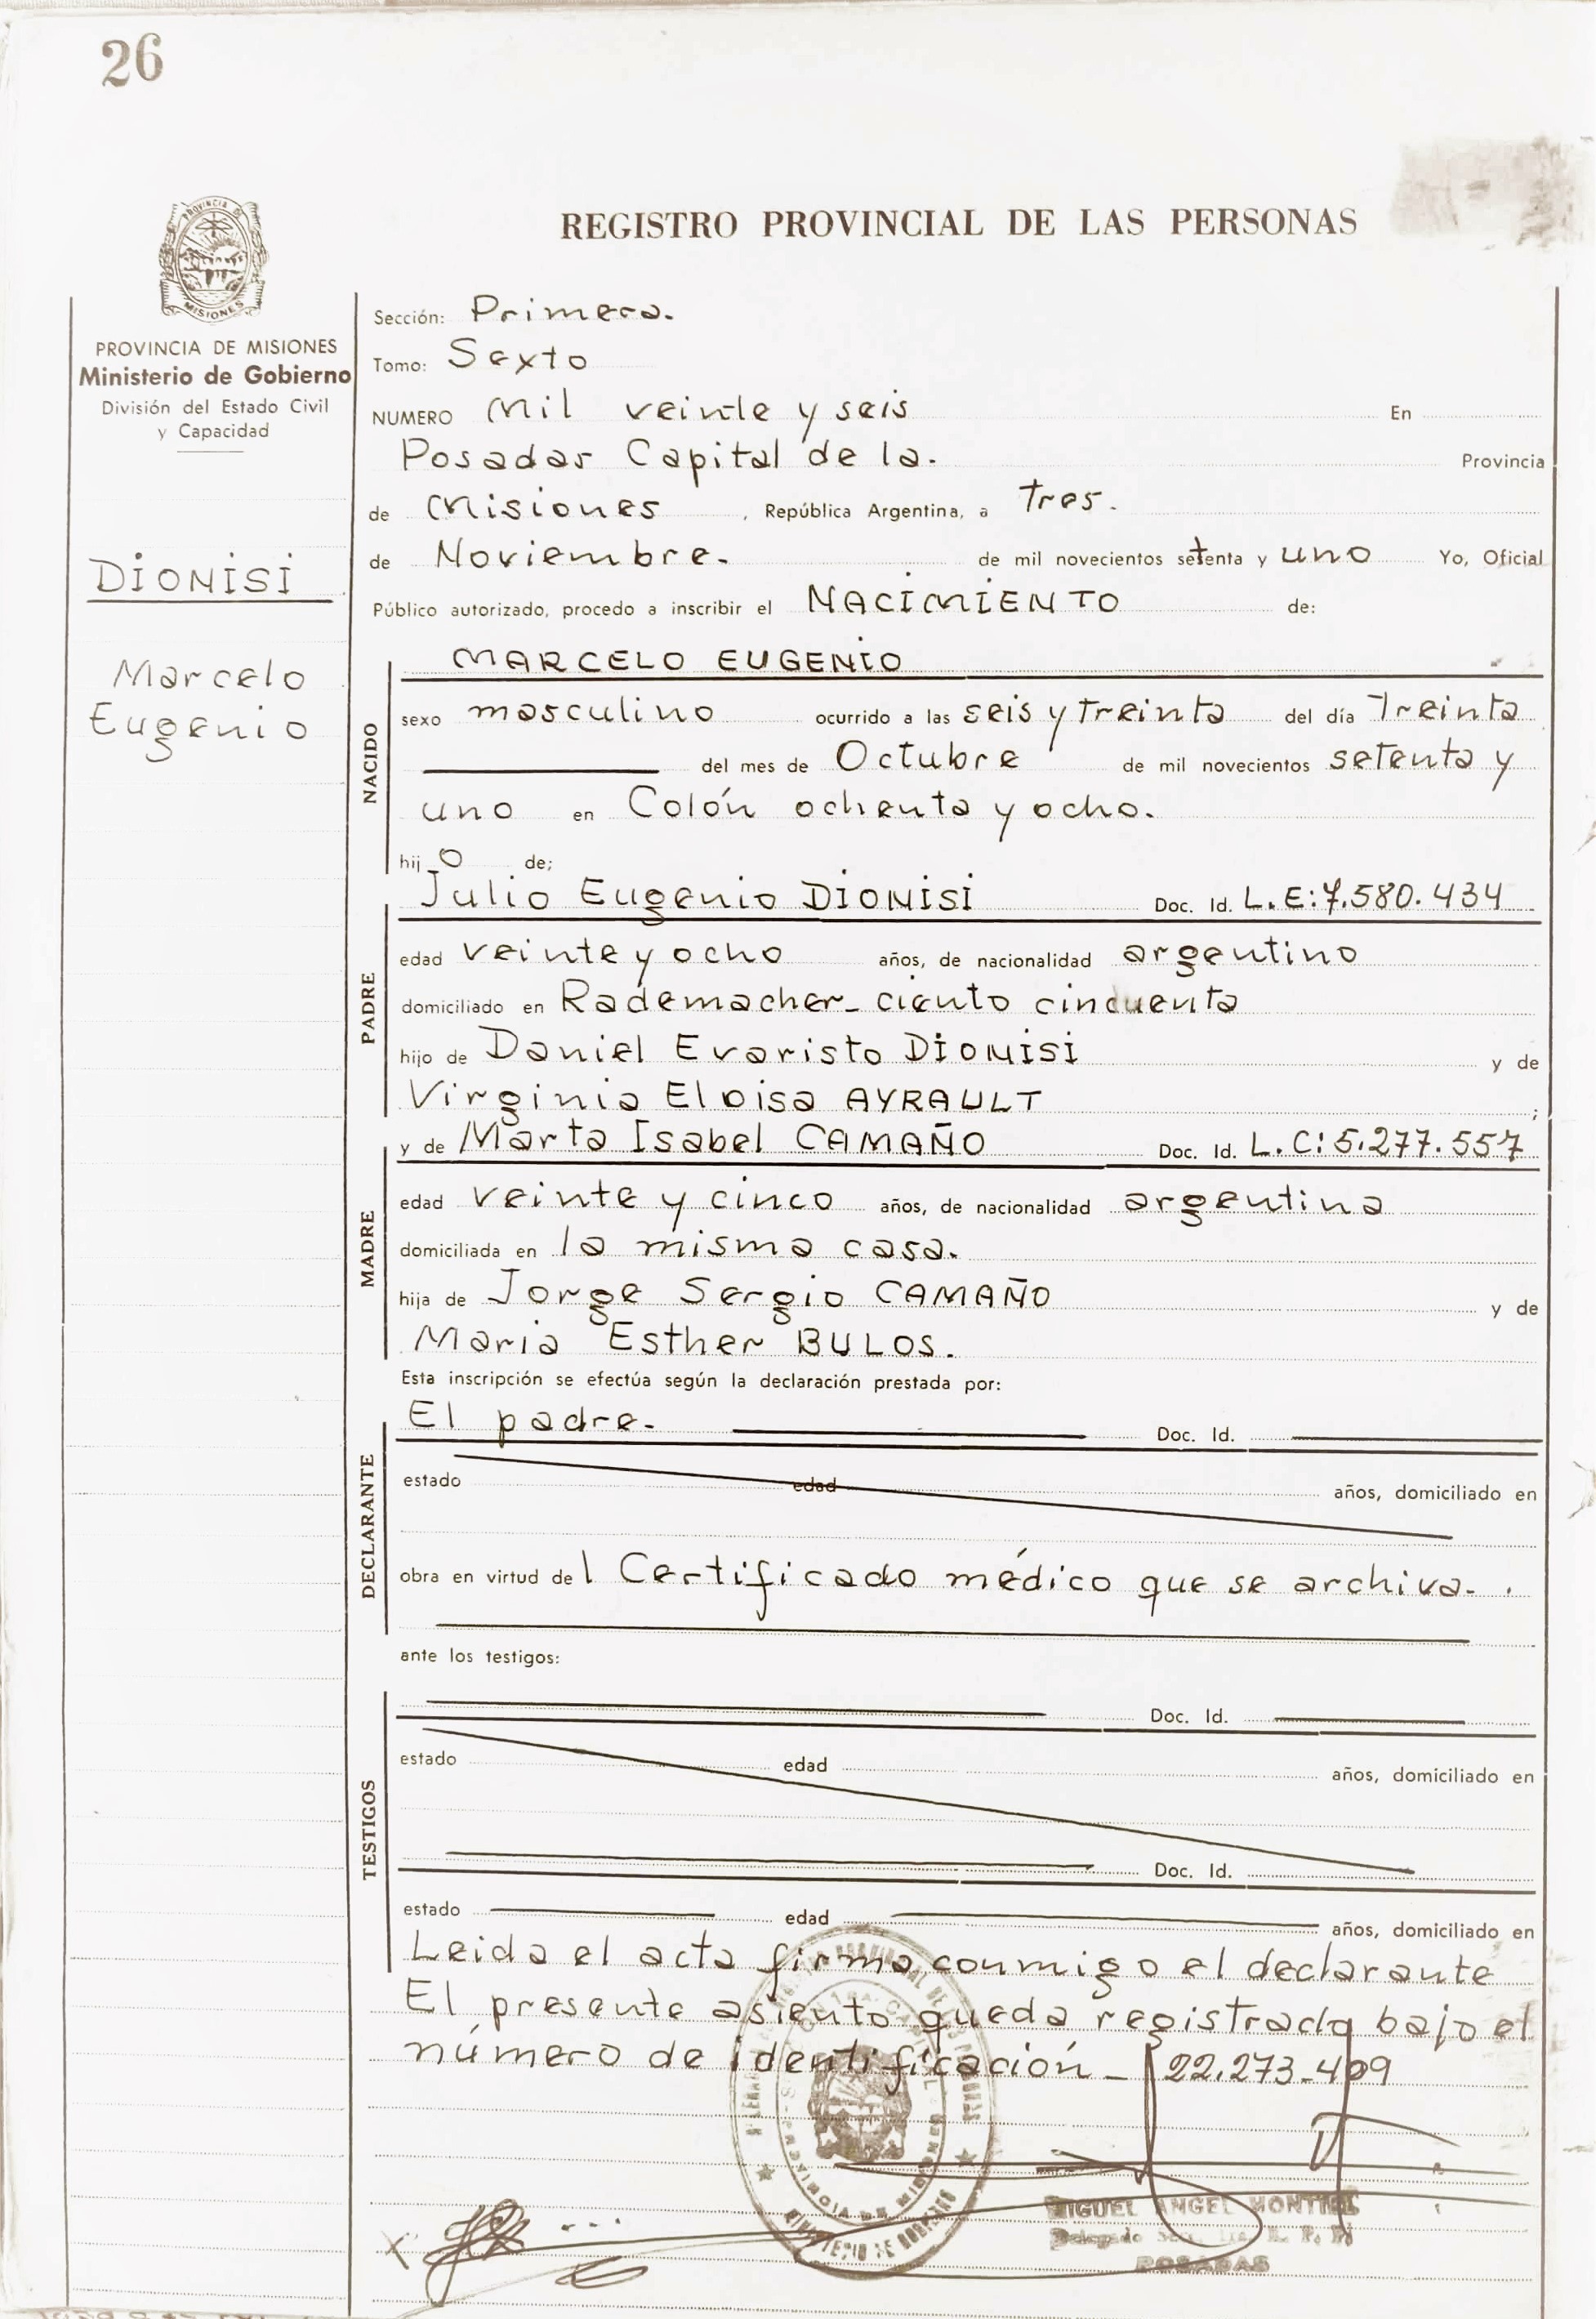 26
REGISTRO PROVINCIAL DE LAS PERSONAS
MISIONES
PROVINCIA DE MISIONES
Ministerio de Gobierno
División del Estado Civil
y Capacidad
DIONISI
Marcelo
Eugenio
Sección: Primera.
Tomo: Sexto
NUMERO Mil veinte y seis En
Posadas Capital de la. Provincia
de Misiones , República Argentina, a Tres.
de Noviembre. de mil novecientos setenta y uno Yo, Oficial
Público autorizado, procedo a inscribir el NACIMIENTO de:
NACIDO
MARCELO EUGENIO
sexo masculino ocurrido a las seis y treinta del día Treinta
del mes de Octubre de mil novecientos setenta y
uno en Colón ochenta y ocho.
hij o de;
PADRE
Julio Eugenio DIONISI Doc. Id. L.E:7.580.434
edad veinte y ocho años, de nacionalidad argentino
domiciliado en Rademacher- ciento cincuenta
hijo de Daniel Evaristo DIONISI y de
Virginia Eloisa AYRAULT ;
MADRE
y de Marta Isabel CAMAÑO Doc. Id. L.C:5.277.557
edad veinte y cinco años, de nacionalidad argentina
domiciliada en la misma casa.
hija de Jorge Sergio CAMAÑO y de
Maria Esther BULOS.
Esta inscripción se efectúa según la declaración prestada por:
DECLARANTE
El padre. Doc. Id.
estado edad años, domiciliado en
obra en virtud del Certificado médico que se archiva.
ante los testigos:
TESTIGOS
Doc. Id.
estado edad años, domiciliado en
Doc. Id.
estado edad años, domiciliado en
Leida el acta firma conmigo el declarante
El presente asiento queda registrado bajo el
número de identificación_ 22.273-409
PROVINCIA DE MISIONES
MINISTERIO DE GOBIERNO
MIGUEL ANGEL MONTIEL
Delegado
POSADAS